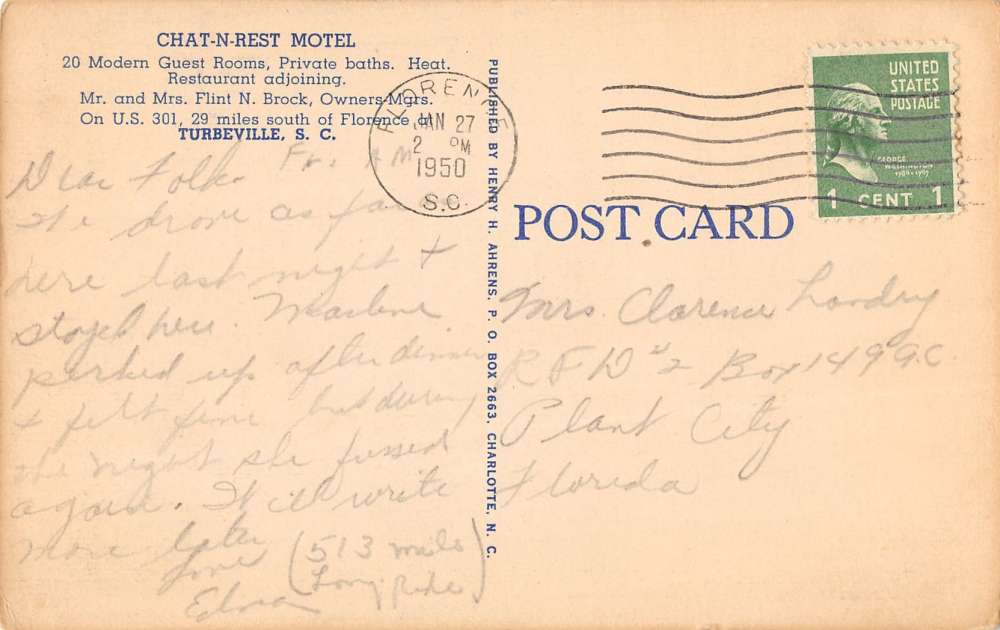 CHAT-N-REST MOTEL
20 Modern Guest Rooms, Private baths. Heat.
Restaurant adjoining.
Mr. and Mrs. Flint N. Brock, Owners-Mgrs.
On U.S. 301, 29 miles south of Florence, at
TURBEVILLE, S. C.
Fri.
Dear Folks
We drove as far
here last night +
stayed here. Marlene
perked up after dinner
+ felt fine but during
the night she fussed
again. Will write
more later
Love
Edna
(513 miles
Long Ride)
PUBLISHED BY HENRY H. AHRENS, P. O. BOX 2663, CHARLOTTE, N. C.
FLORENCE
JAN 27
2 PM
1950
S.C.
UNITED
STATES
POSTAGE
GEORGE
WASHINGTON
1789-1797
1 CENT 1
POST CARD
Mrs. Clarence Landry
R F D #2 Box 149
Plant City
Florida